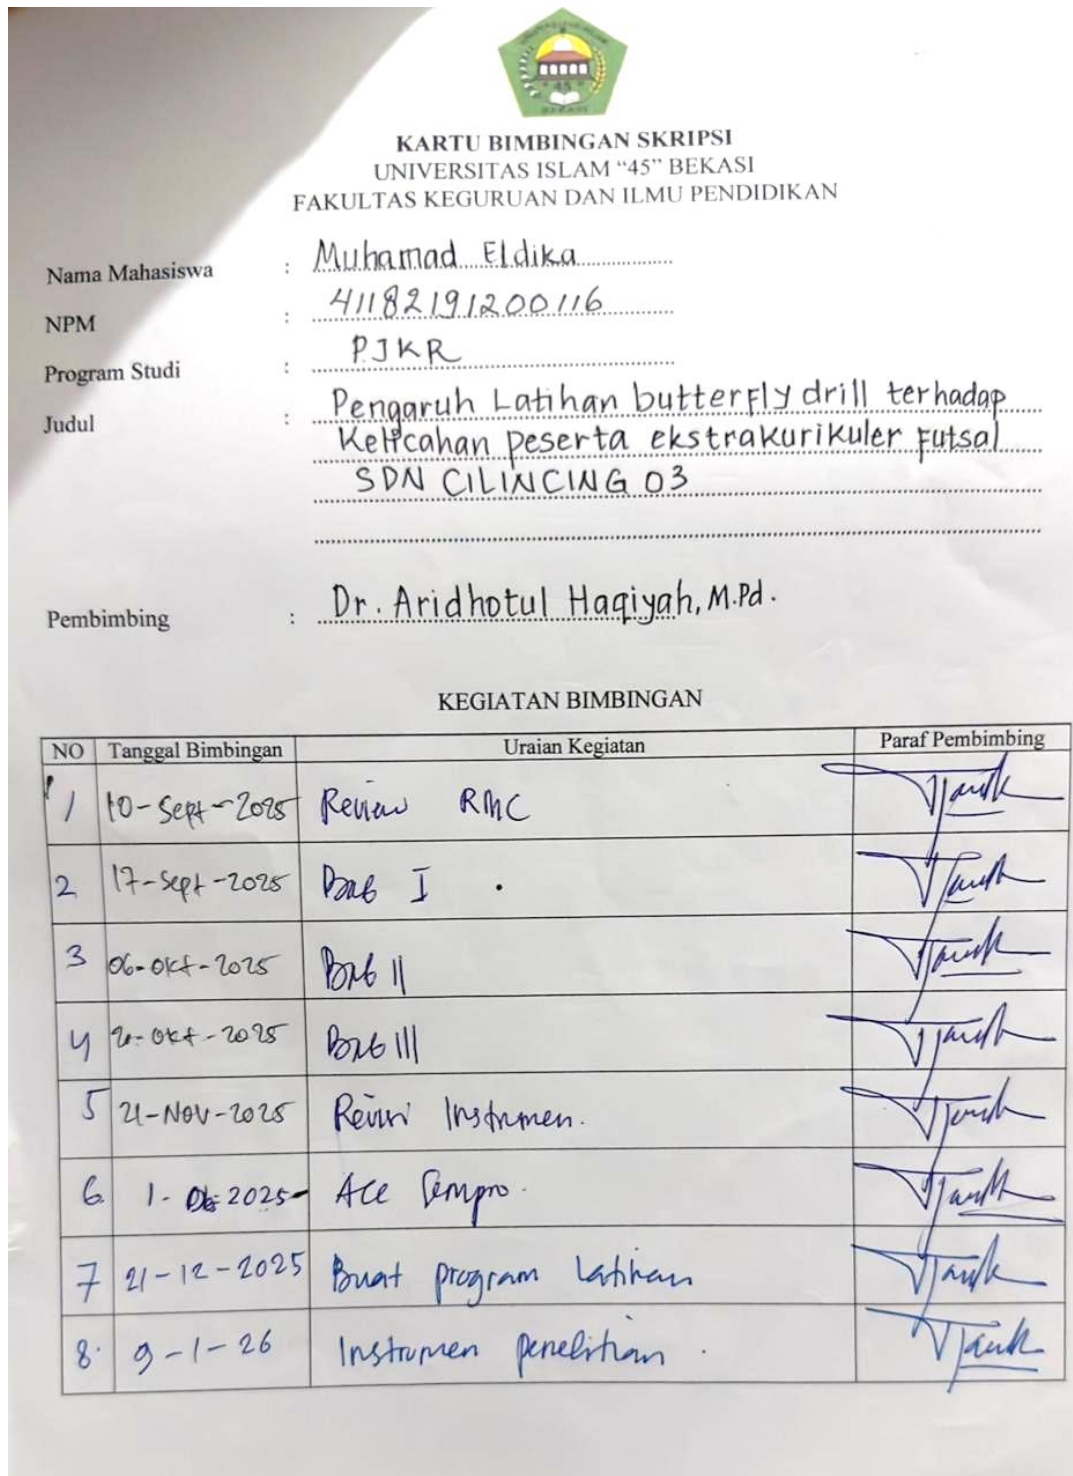 45
BEKASI
KARTU BIMBINGAN SKRIPSI
UNIVERSITAS ISLAM “45” BEKASI
FAKULTAS KEGURUAN DAN ILMU PENDIDIKAN
Nama Mahasiswa : Muhamad Eldika
NPM : 41182191200116
Program Studi : PJKR
Judul : Pengaruh Latihan butterfly drill terhadap
Kelicahan peserta ekstrakurikuler futsal
SDN CILINCING 03
Pembimbing : Dr. Aridhotul Haqiyah, M.Pd.
KEGIATAN BIMBINGAN
NO Tanggal Bimbingan Uraian Kegiatan Paraf Pembimbing
1 10-Sept-2025 Review RMC
2 17-Sept-2025 Bab I
3 06-Okt-2025 Bab II
4 20-Okt-2025 Bab III
5 21-Nov-2025 Revisi Instrumen.
6 1- 2025 Acc Sempro.
7 21-12-2025 Buat program Latihan
8. 9-1-26 Instrumen penelitian.